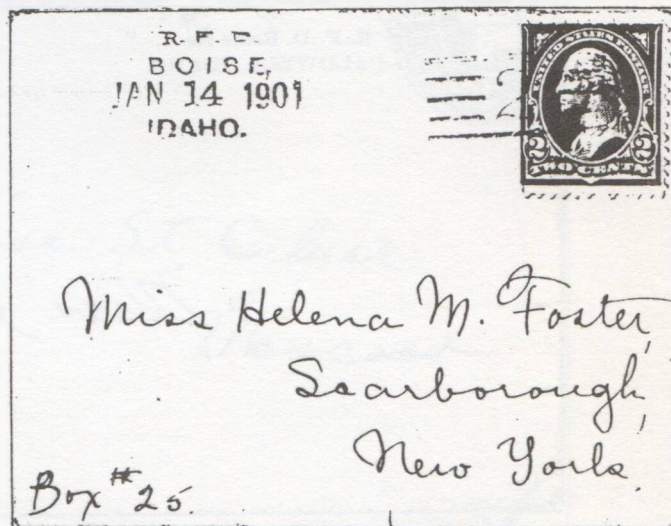 R. F. D.
BOISE,
JAN 14 1901
IDAHO.
2
UNITED STATES POSTAGE
2 2
TWO CENTS
Miss Helena M. Foster,
Scarborough,
New York.
Box # 25.